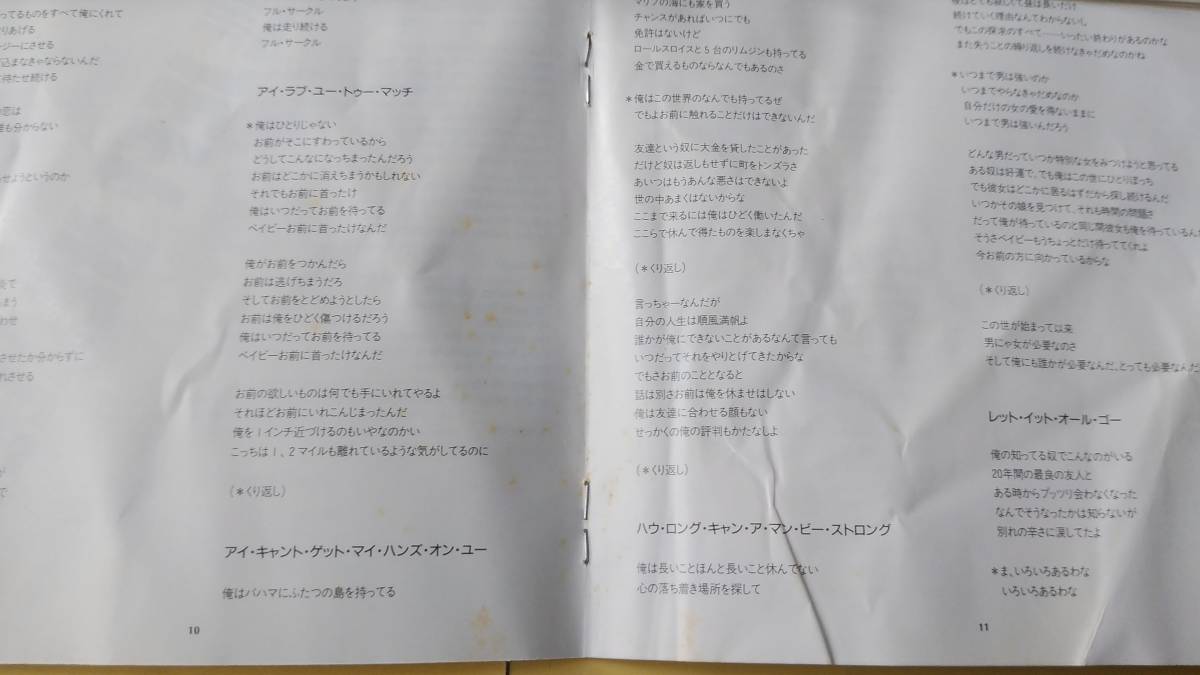 ってるものをすべて俺にくれて
りあげる
ージーにさせる
込まなきゃならないんだ
待たせ続ける
恋は
誰も分からない
せようというのか
炎で
まう
わせ
させたか分からずに
れさせる
が
で
フル・サークル
俺は走り続ける
フル・サークル
アイ・ラブ・ユー・トゥー・マッチ
*俺はひとりじゃない
お前がそこにすわっているから
どうしてこんなになっちまったんだろう
お前はどこかに消えちまうかもしれない
それでもお前に首ったけ
俺はいつだってお前を待ってる
ベイビーお前に首ったけなんだ
俺がお前をつかんだら
お前は逃げちまうだろ
そしてお前をとどめようとしたら
お前は俺をひどく傷つけるだろう
俺はいつだってお前を待ってる
ベイビーお前に首ったけなんだ
お前の欲しいものは何でも手にいれてやるよ
それほどお前にいれこんじまったんだ
俺を1インチ近づけるのもいやなのかい
こっちは1、2マイルも離れているような気がしてるのに
(*くり返し)
アイ・キャント・ゲット・マイ・ハンズ・オン・ユー
俺はバハマにふたつの島を持ってる
10
マリブの海にも家を買う
チャンスがあればいつにでも
免許はないけど
ロールスロイスと5台のリムジンも持ってる
金で買えるものならなんでもあるのさ
*俺はこの世界のなんでも持ってるぜ
でもよお前に触れることだけはできないんだ
友達という奴に大金を貸したことがあった
だけど奴は返しもせずに町をトンズラさ
あいつはもうあんな悪さはできないよ
世の中あまくはないからな
ここまで来るには俺はひどく働いたんだ
ここらで休んで得たものを楽しまなくちゃ
(*くり返し)
言っちゃーなんだが
自分の人生は順風満帆よ
誰かが俺にできないことがあるなんて言っても
いつだってそれをやりとげてきたからな
でもさお前のこととなると
話は別さお前は俺を休ませはしない
俺は友達に合わせる顔もない
せっかくの俺の評判もかたなしよ
(*くり返し)
ハウ・ロング・キャン・ア・マン・ビー・ストロング
俺は長いことほんと長いこと休んでない
心の落ち着き場所を探して
夜はとても寂しくて昼は長いだけ
続けていく理由なんてわからないし
でもこの探求のすべて……いったい終わりがあるのかな
また失うことの繰り返しを続けなきゃだめなのかね
*いつまで男は強いのか
いつまでやらなきゃだめなのか
自分だけの女の愛を得ないままに
いつまで男は強いんだろう
どんな男だっていつか特別な女をみつけようと思ってる
ある奴は好運で、でも俺はこの世にひとりぼっち
でも彼女はどこかに居るはずだから探し続けるんだ
いつかその娘を見つけて、それも時間の問題さ
だって俺が待っているのと同じ間彼女も俺を待っているんだ
そうさベイビーもうちょっとだけ待っててくれよ
今お前の方に向かっているからな
(*くり返し)
この世が始まって以来
男にゃ女が必要なのさ
そして俺にも誰かが必要なんだ、とっても必要なんだ
レット・イット・オール・ゴー
俺の知ってる奴でこんなのがいる
20年間の最良の友人と
ある時からプッツリ会わなくなった
なんでそうなったかは知らないが
別れの辛さに涙してたよ
*ま、いろいろあるわな
いろいろあるわな
11